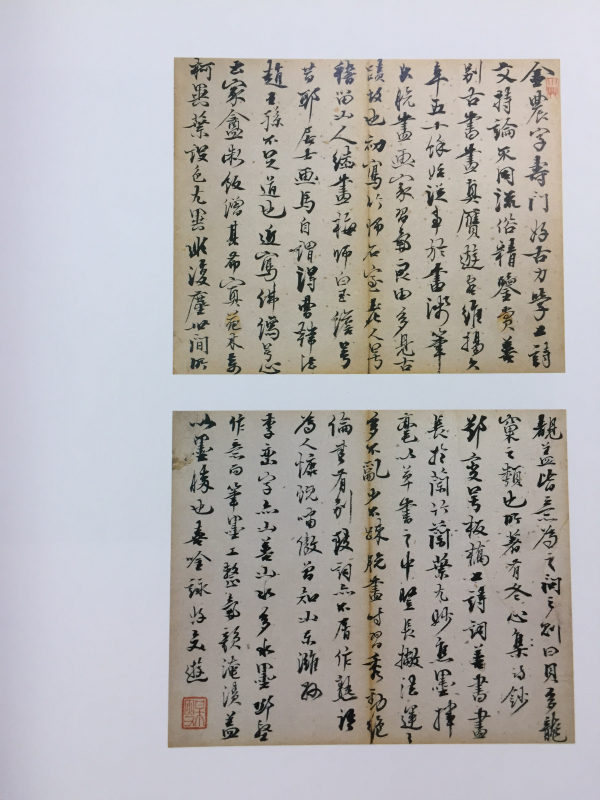 金農字壽門好古力學工詩
文持論不同流俗精鑒賞善
別古書畫真贋遊客維揚久
年五十餘始從事於畫涉筆
即脫畫家習氣良由多見古
蹟故也初寫竹師石室老人號
稽留山人繼畫梅師白玉蟾號
昔耶居士畫馬自謂得曹韓法
趙王孫不足道也近寫佛號心
出家盦粥飯僧其布寘花木奇
柯異葉設色尤異非復塵世間所
覩蓋皆意為之問之則曰貝多龍
窠之類也所著有冬心集詩鈔
鄭燮號板橋工詩詞善書畫
長於蘭竹蘭葉尤妙焦墨揮
毫以草書之中豎長撇法運之
多不亂少不疎脫盡時習秀勁絕
倫書有別致詞亦不屑作熟語
為人慷慨嘯傲曾知山東濰縣
李 字 山善山水多水墨
作意向筆墨工整氣韻淹潤蓋
以墨勝也喜吟詠好交遊